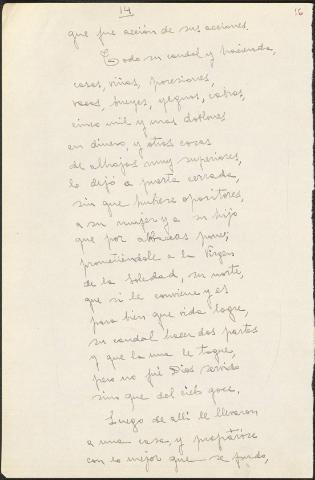 14
16
que fue acción de sus acciones.
Todo su caudal y hacienda,
casas, viñas, posesiones,
vacas, bueyes, yeguas, cabras,
cinco mil y mas doblones
en dinero, y otras cosas
de alhajas muy superiores,
lo dejó a puerta cerrada,
sin que hubiese opositores,
a su mujer y a su hijo
que por albaceas pone,
prometiéndole a la Virgen
de la Soledad, su norte,
que si le conviene y es
para bien que vida logre,
su caudal hacer dos partes
y que la una le toque,
pero no fué Dios servido
sino que del cielo goce.
Luego de alli le llevaron
a una casa, y
con lo mejor que se pudo,